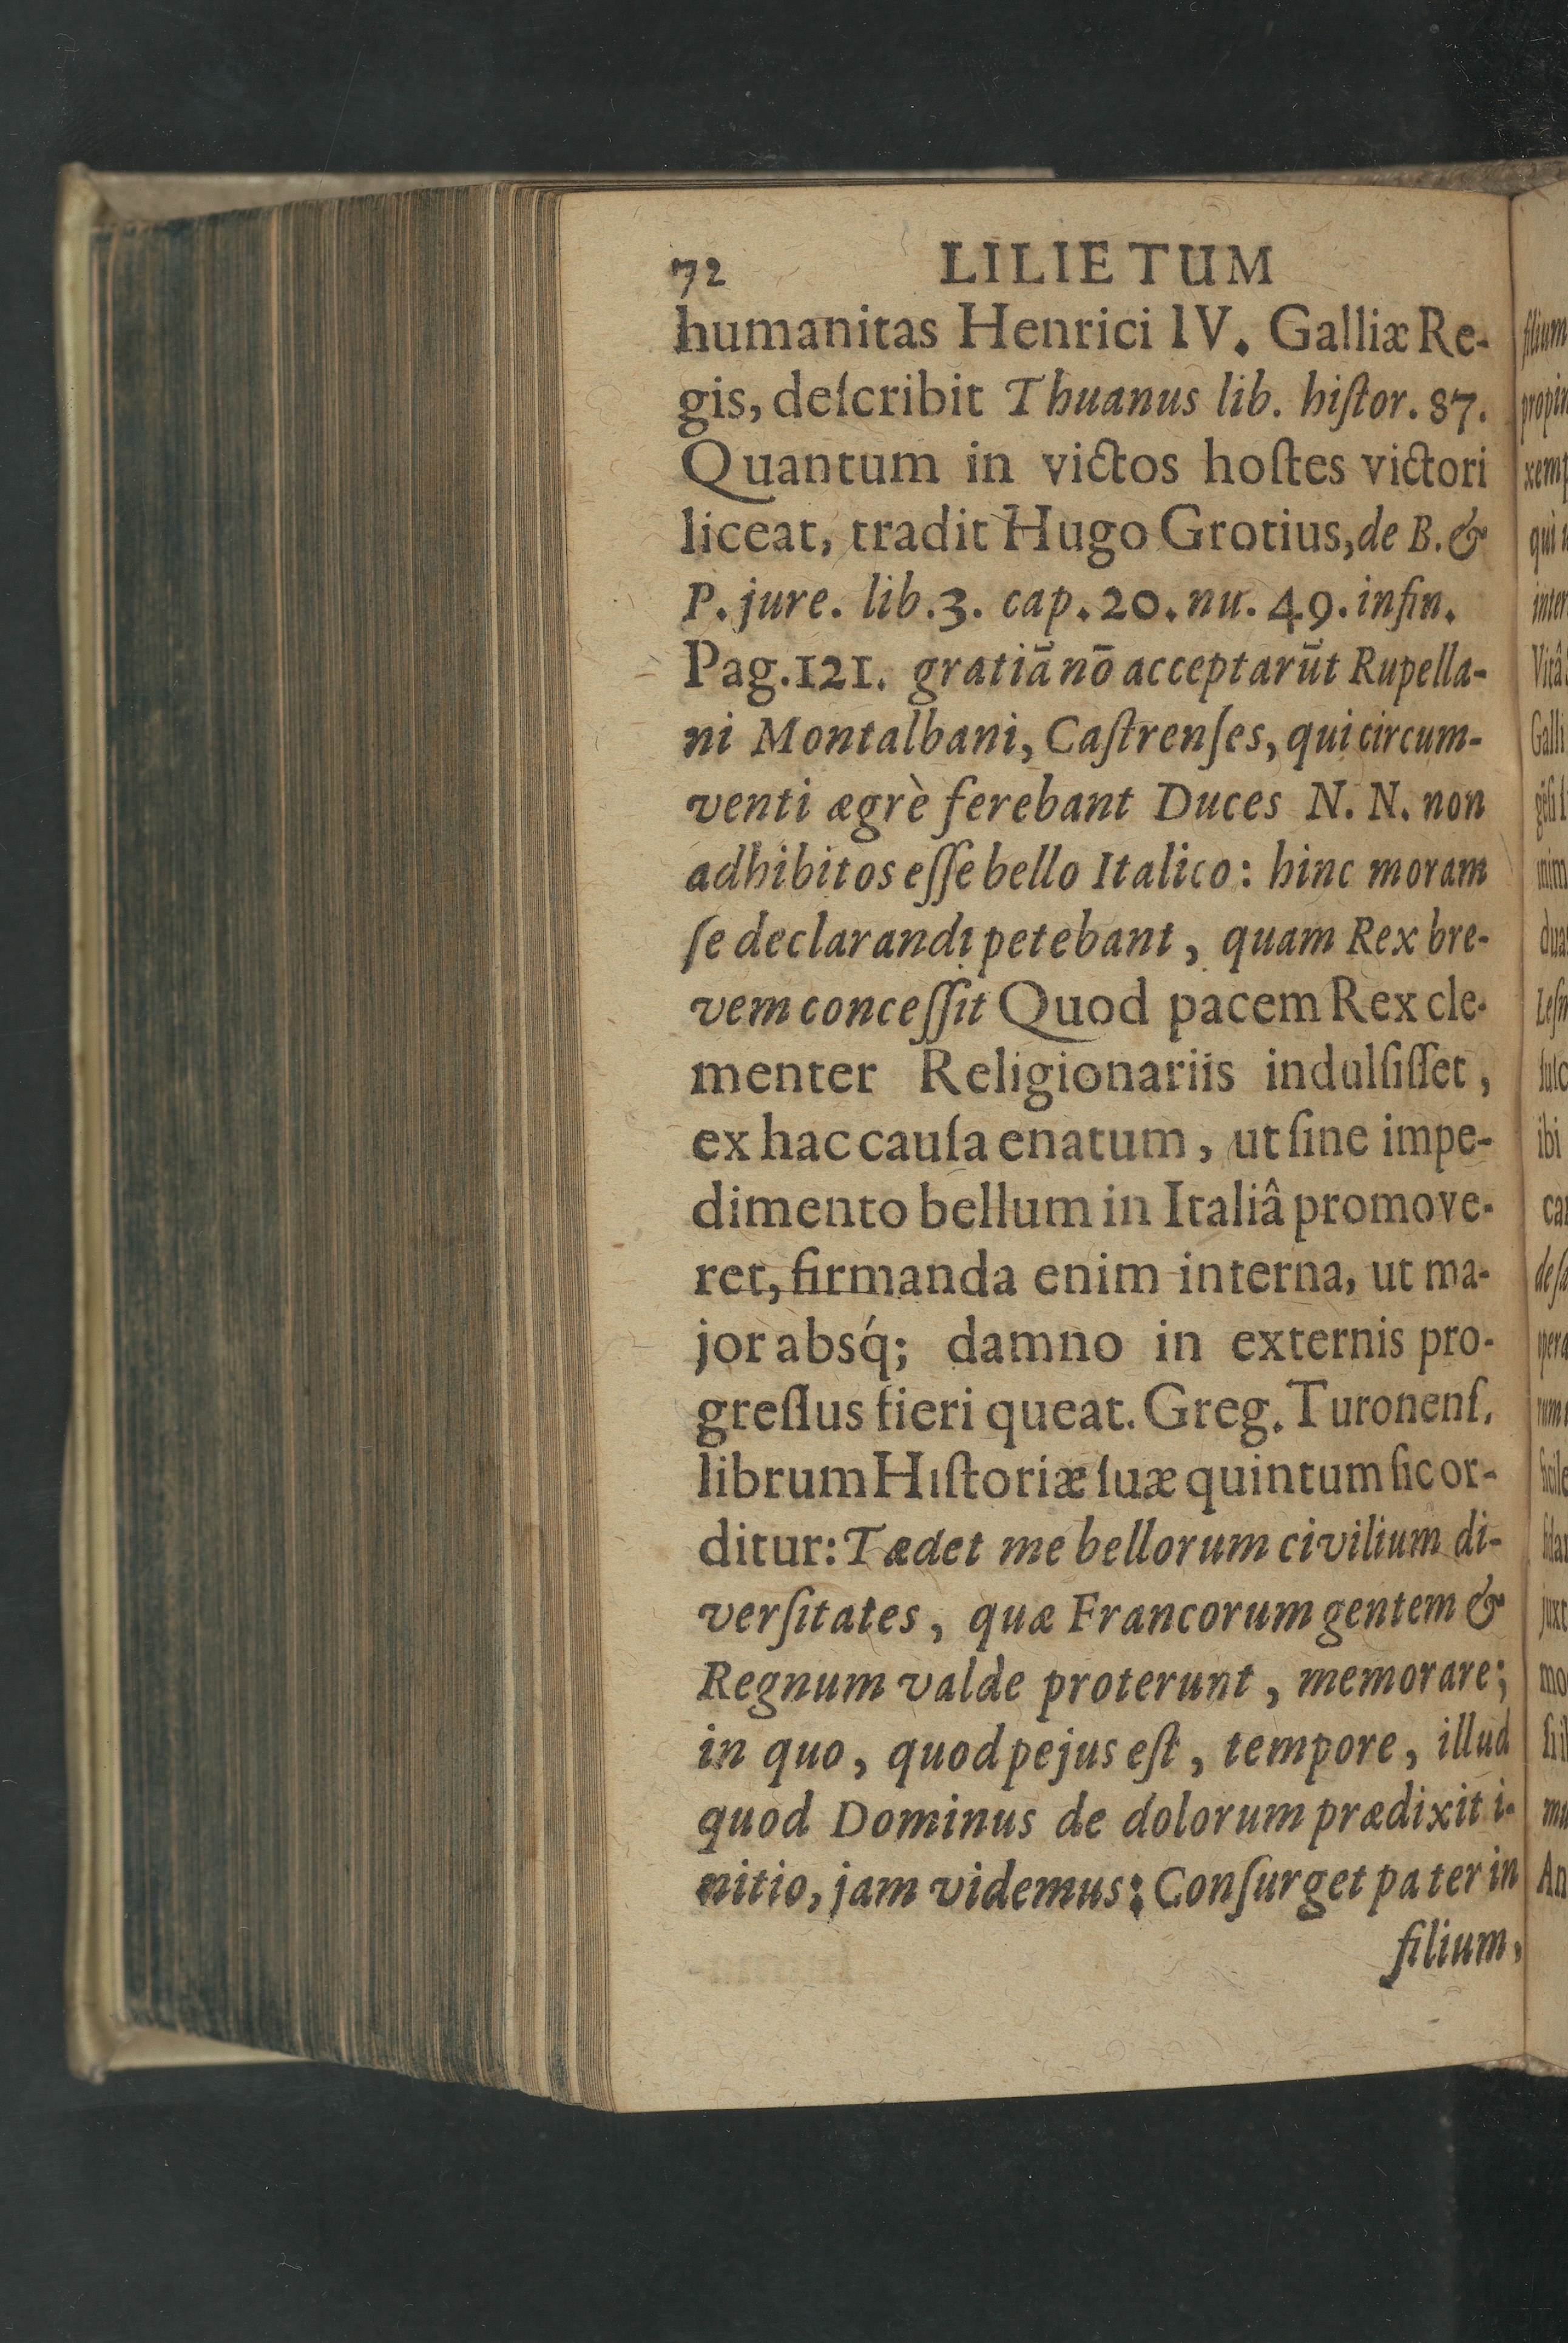 72 LILIETUM
humanitas Henrici IV. Galliæ Re-
gis, deſcribit Thuanus lib. hiſtor. 87.
Quantum in victos hoſtes victori
liceat, tradit Hugo Grotius, de B. &
P. jure. lib. 3. cap. 20. nu. 49. infin.
Pag. 121. gratiā nō acceptarūt Rupella-
ni Montalbani, Caſtrenſes, qui circum-
venti ægrè ferebant Duces N. N. non
adhibitos eſſe bello Italico: hinc moram
ſe declarandi petebant, quam Rex bre-
vem conceſſit Quod pacem Rex cle-
menter Religionariis indulſiſſet,
ex hac cauſa enatum, ut ſine impe-
dimento bellum in Italiâ promove-
ret, firmanda enim interna, ut ma-
jor absq́; damno in externis pro-
greſſus fieri queat. Greg. Turonenſ.
librum Hiſtoriæ ſuæ quintum ſic or-
ditur: Tædet me bellorum civilium di-
verſitates, quæ Francorum gentem &
Regnum valde proterunt, memorare;
in quo, quod pejus eſt, tempore, illud
quod Dominus de dolorum prædixit i-
nitio, jam videmus: Conſurget pater in
filium,